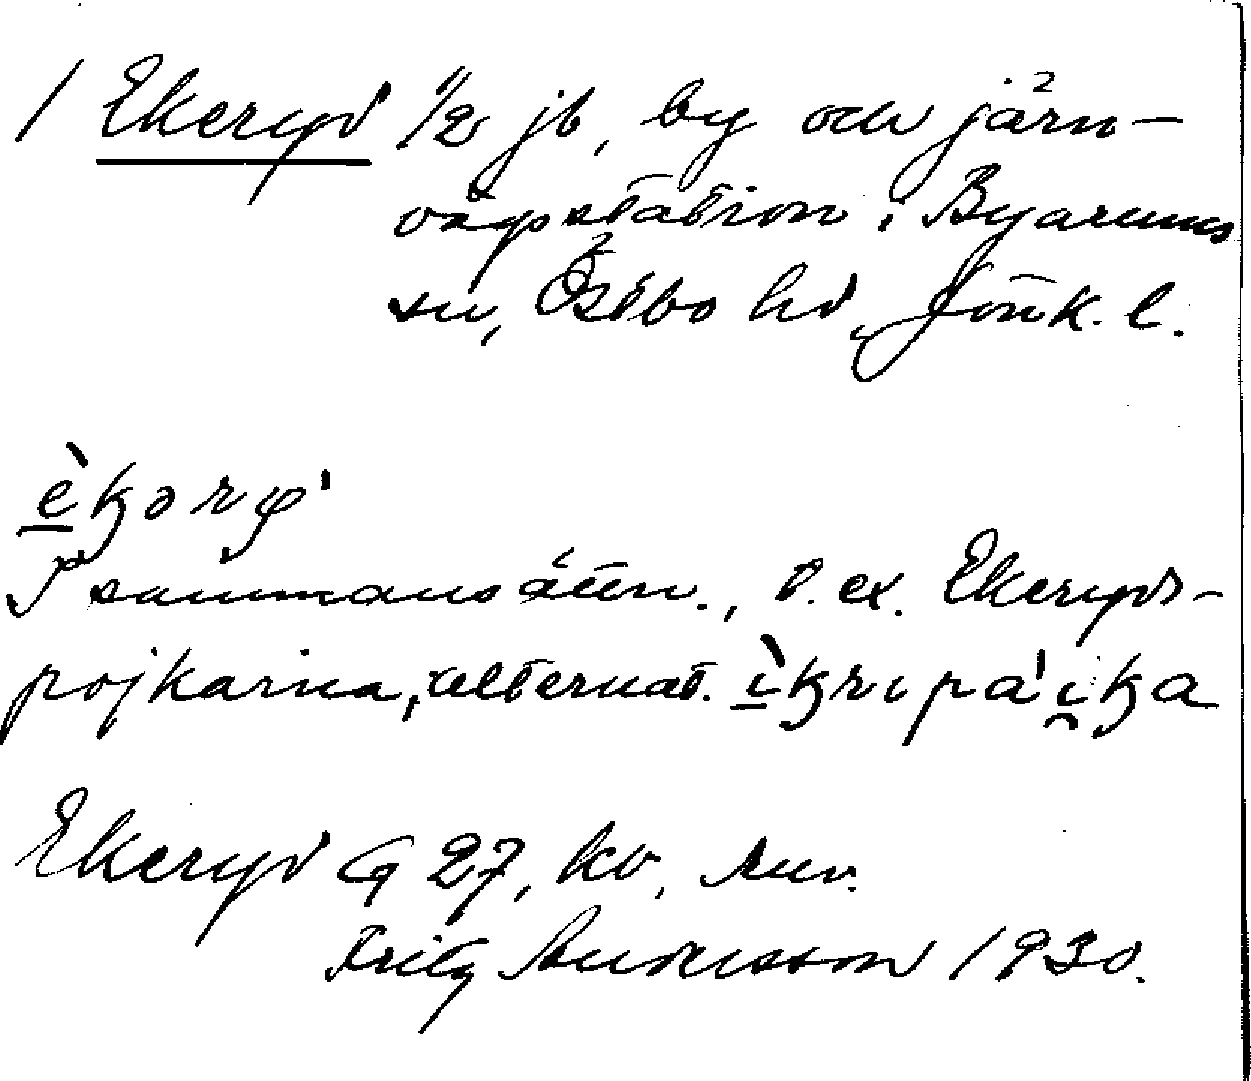 1 Ekeryd 1/2 jb, by och järn-
vägsstation i Byarums
sn, Östbo hd, Jönk. l.
èkəry'
I sammansättn., t. ex. Ekeryds-
pojkarna, alternat. ìkrɩpa'ika
Ekeryd G 27, kv,
Fritz Andersson 1930.